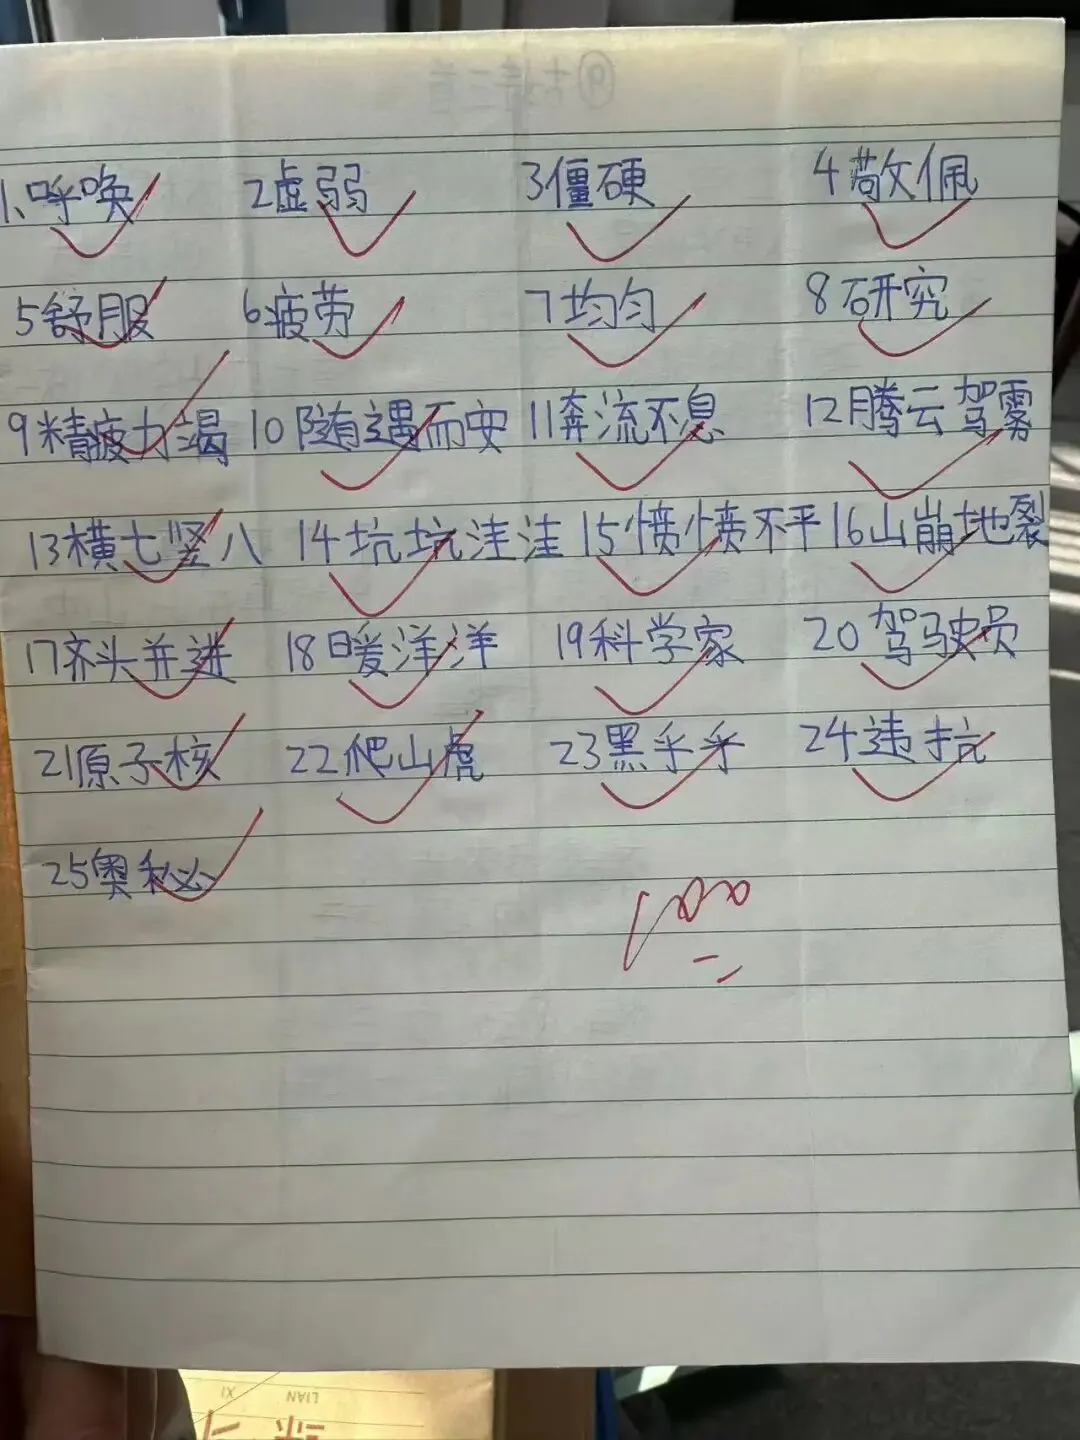 1、呼唤 2虚弱 3僵硬 4敬佩
5舒服 6疲劳 7均匀 8研究
9精疲力竭 10随遇而安 11奔流不息 12腾云驾雾
13横七竖八 14坑坑洼洼 15愤愤不平 16山崩地裂
17齐头并进 18暖洋洋 19科学家 20驾驶员
21原子核 22爬山虎 23黑乎乎 24违抗
25奥秘
100
LIAN XI